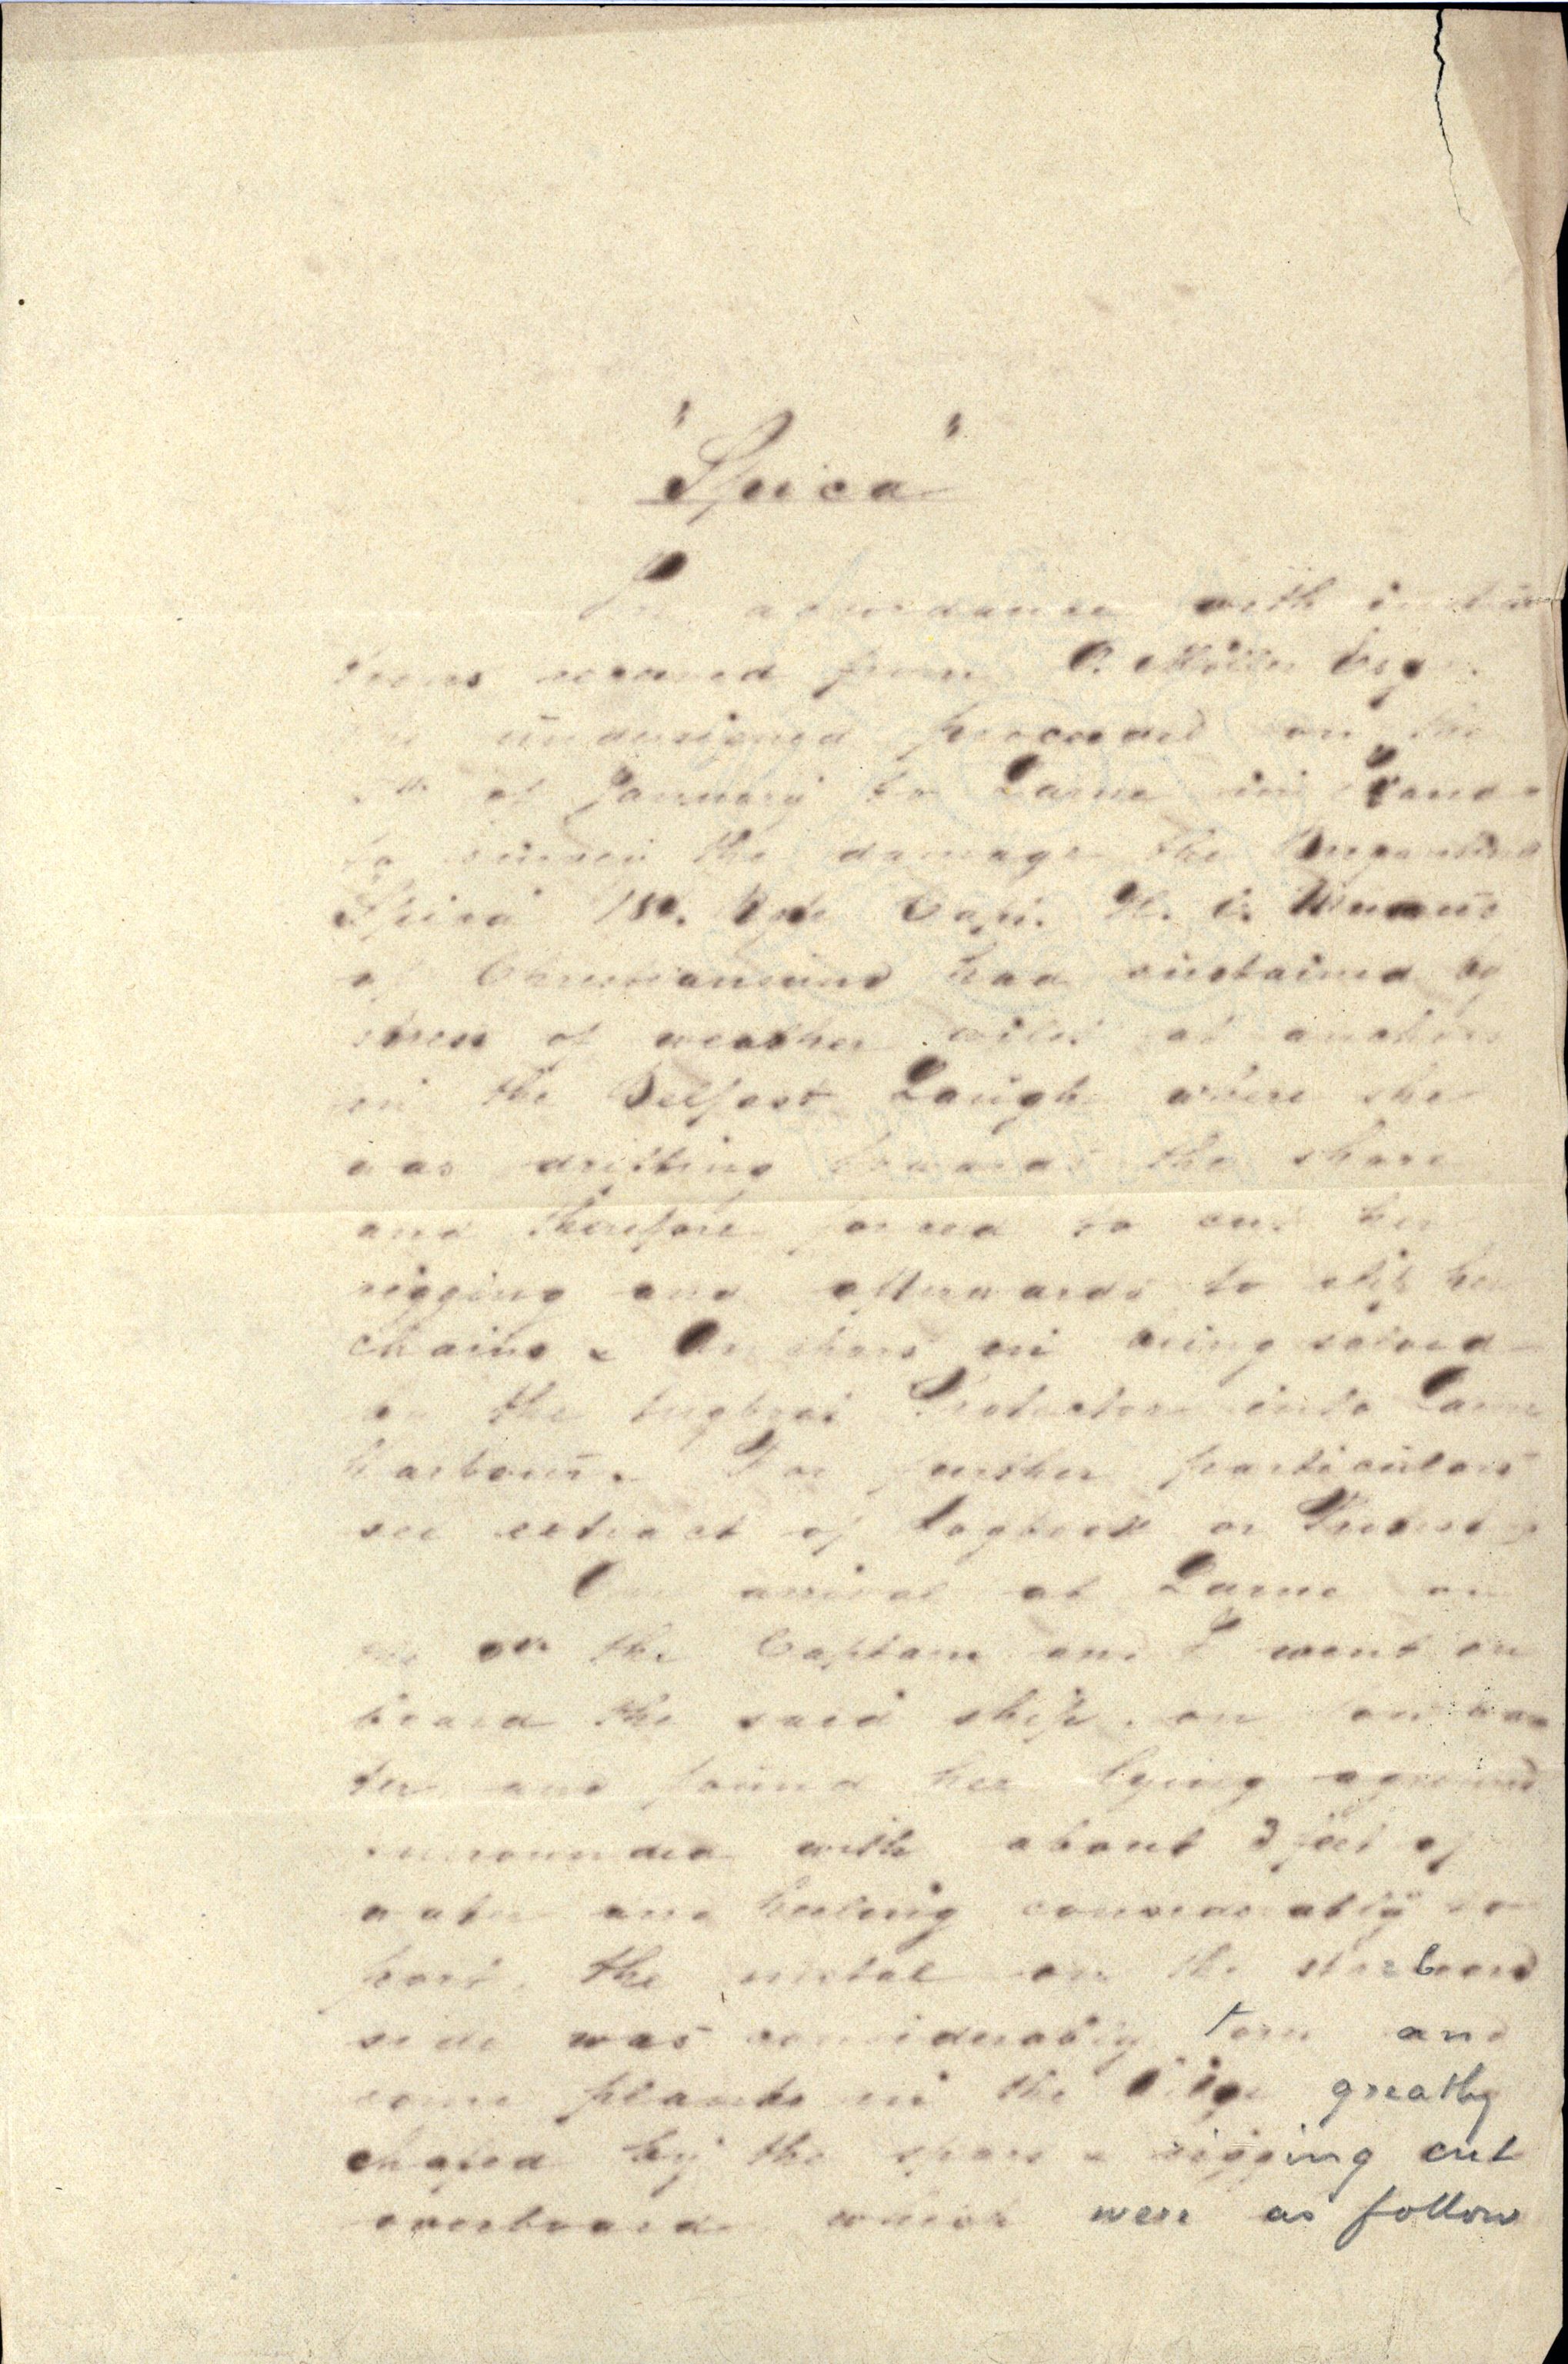 "Spica"
In accordance with instruc
tions received from O. Möller Esqr.
the undersigned proceeded on the
of January to Larne in
to survey the damage the
Spica Capt. H. C.
of Christiansund had sustained by
stress of weather wilst at anchor
in the Belfast Lough where she
was drifting towards the shore
and therefore forced to cut her
rigging and afterwards to slip her
chains & Anchors on being towed
by the tugboat Protector into Larne
harbour. For further particulars
see extract of Logbook or Protest
On arrival at Larne on
the the Captain and I went on
board the said ship, on low wa
ter and found her lying aground
surrounded with about 3 feet of
water and heeling considerably to
port, the metal on the starboard
side was considerably torn and
some planks in the bilge greatly
chafed by the spars & rigging cut
overboard which were as follow